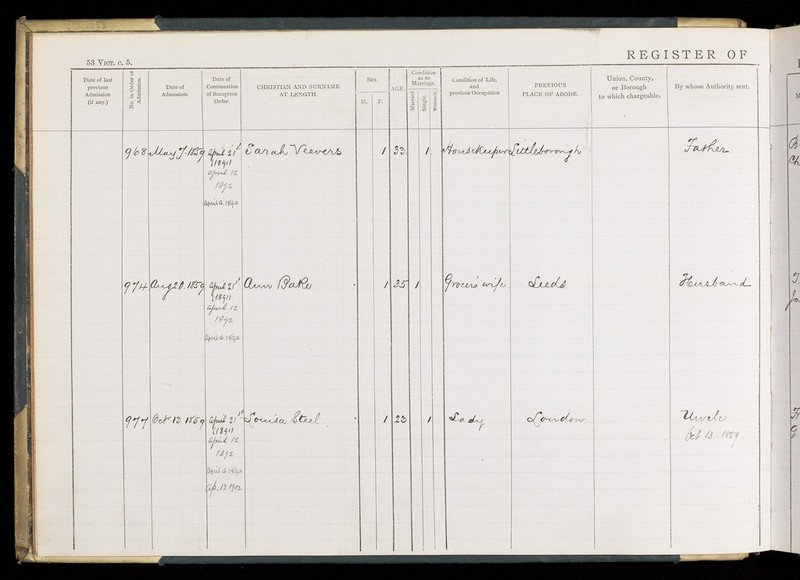 53 VICT. c. 5.
REGISTER OF
Date of last previous Admission (if any.)
No. in Order of Admission.
Date of Admission.
Date of Continuation of Reception Order.
CHRISTIAN AND SURNAME AT LENGTH.
Sex.
M.
F.
AGE.
Condition as to Marriage.
Married.
Single.
Widowed.
Condition of Life, and previous Occupation
PREVIOUS PLACE OF ABODE.
Union, County, or Borough to which chargeable.
By whose Authority sent.
968 May 7. 1859 April 21st Sarah Veevers 1 33 1 Housekeeper Littleborough Father
1891
April 12
1892
974 Aug 20. 1859 April 21st Ann Bake 1 35 1 Grocer's wife. Leeds Husband
1891
April 12
1892
977 Oct 13 1859 April 21st Louisa Steel 1 23 1 Lady London Uncle
1891 Oct 13 1859
April 12
1892
Ap. 12 1902